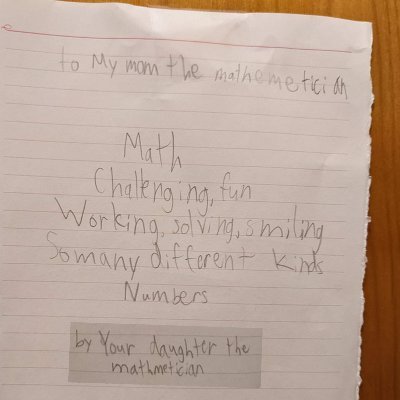 to My mom the mathemetician
Math
Challenging, fun
Working, solving, smiling
So many different kinds
Numbers
by Your daughter the
mathmetician